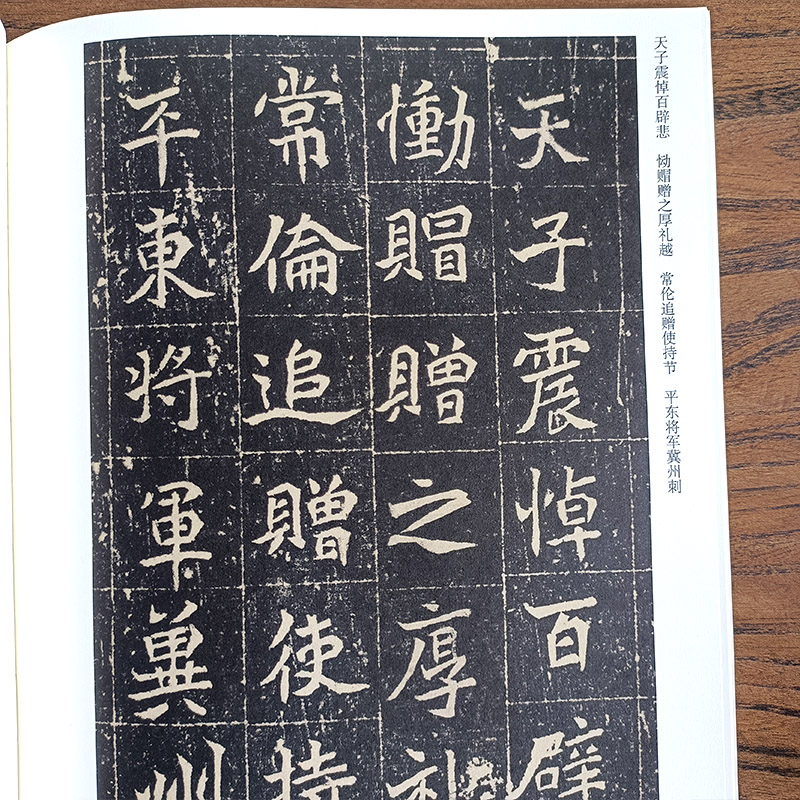 天子震悼百辟悲　恸赗赠之厚礼越　常伦追赠使持节　平东将军冀州刺
天子震悼百辟
慟賵贈之厚礼
常倫追贈使持
平東将軍冀州